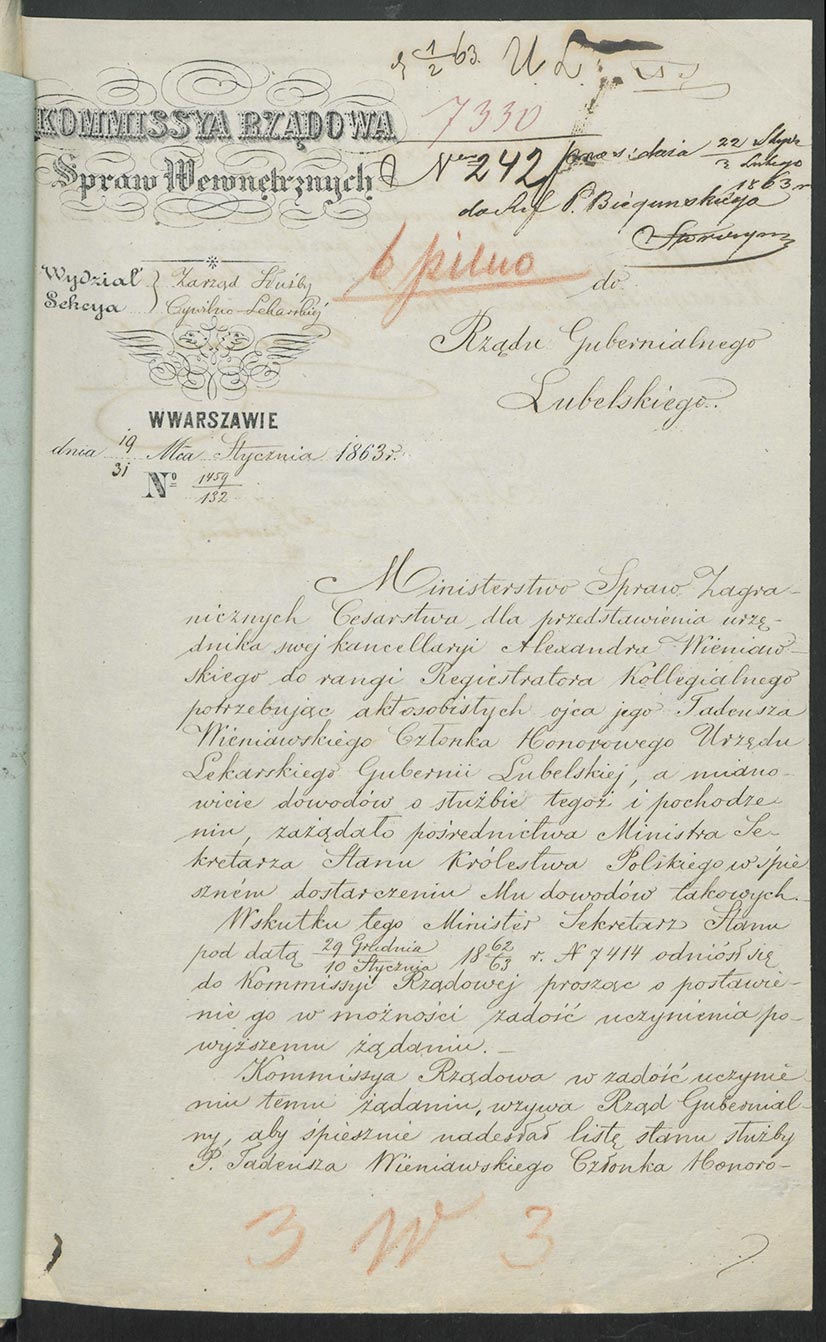 1/2 63. U. L.
KOMMISSYA RZĄDOWA
7330
Spraw Wewnętrznych
No 242 dnia 22 Stycz / 3 Lutego 1863 r
do Ref P. Biegunskiego
6 pilno
Wydział } Zarząd Służby
Sekcya } Cywilno-Lekarskiej
do
Rządu Gubernialnego
Lubelskiego.
W WARSZAWIE
dnia 19/31 Mca Stycznia 1863 r.
No 1459/132
Ministerstwo Spraw Zagra-
nicznych Cesarstwa, dla przedstawienia urzę-
dnika swej kancellaryi Alexandra Wieniaw-
skiego do rangi Regiestratora Kollegialnego
potrzebując akt osobistych ojca jego Tadeusza
Wieniawskiego Członka Honorowego Urzędu
Lekarskiego Gubernii Lubelskiej, a miano-
wicie dowodów o służbie tegoż i pochodze-
niu, zażądało pośrednictwa Ministra Se-
kretarza Stanu Królestwa Polskiego w śpie
szném dostarczeniu Mu dowodów takowych.
Wskutku tego Minister Sekretarz Stanu
pod datą 29 Grudnia / 10 Stycznia 1862/63 r. N 7414 odniósł się
do Kommissyi Rządowej prosząc o postawie-
nie go w możności zadość uczynienia po-
wyższemu żądaniu. –
Kommissya Rządowa w zadość uczynie
niu temu żądaniu, wzywa Rząd Gubernial-
ny, aby śpiesznie nadesłał listę stanu służby
P. Tadeusza Wieniawskiego Członka Honoro-
3 W 3